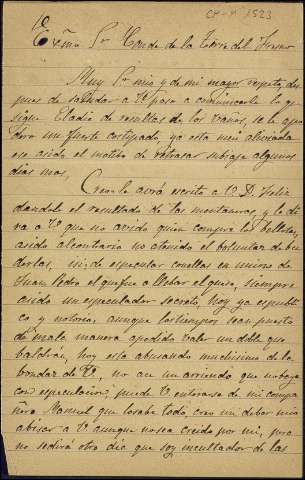 CM-M 1523
Exmo Sr Conde de la Torre del Fresno
Muy Sr mio y de mi mayor respeto, des
pues de saludar a V. paso a comunicarle lo q.
sigue Eladio de resultas de los vaños, se le apo
dero un fuerte costipado, ya esta mui aliviado
eso asido el motibo de retrasar subiaje algunos
dias mas,
Creo le avrá escrito a V. D. Feliz
dandole el resultado de las montaneras y le di
ra a V. que no avido quien compre las bellotas,
asido alcontario no atenido el boluntar de ben
derlas, ni, de especular conellas en union de
Juan Pedro el que fue a llebar el queso, siempre
asido un especulador secreto, hoy ya espubli
co y notorio, aunque los tiempos seas puesto
de mala manera apodido valer un doble que
baldran, hoy esta abusando muchisimo de la
bondaz de V., no ay un arriendo que no baya
con especulacion, puede V. enterarse de mi compa
ñero Manuel que losabe todo, creo un deber mio
abisar a V. aunque no sea creido por mi, pero
no sedirá otro dia que soy incultador de las